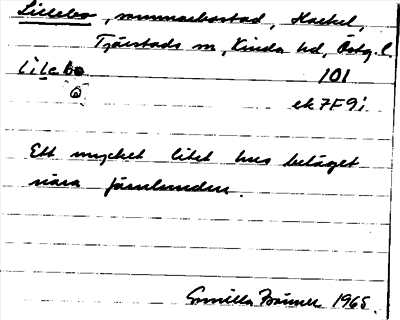 Lillebo, sommarbostad, Haekel,
Tjärstads sn, Kinda hd, Östg. l.
lilebo 101
ek 7F9i
Ett mycket litet hus beläget
nära järnlunden.
Gunilla Bränner 1965.